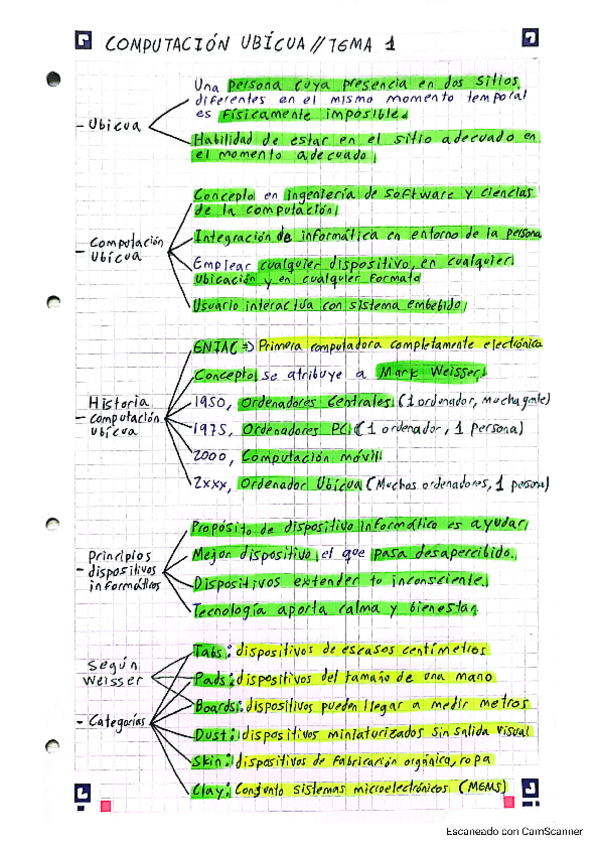 COMPUTACIÓN UBÍCUA // TEMA 1
- Ubicua
Una persona cuya presencia en dos sitios
diferentes en el mismo momento temporal
es Físicamente imposible.
Habilidad de estar en el sitio adecuado en
el momento adecuado
- Computación
Ubícua
Concepto en ingeniería de software y ciencias
de la computación
Integración de informática en entorno de la persona
Emplear cualquier dispositivo, en cualquier
Ubicación y en cualquier formato
Usuario interactúa con sistema embebido
- Historia
computación
ubícua
ENIAC => Primera computadora completamente electrónica
Concepto se atribuye a Mark Weisser
1950, Ordenadores Centrales (1 ordenador, mucha gente)
1975, Ordenadores PC (1 ordenador, 1 persona)
2000, Computación móvil
2xxx, Ordenador Ubícua (Muchos ordenadores, 1 persona)
- Principios
dispositivos
informáticos
Propósito de dispositivo informático es ayudar
Mejor dispositivo el que pasa desapercibido.
Dispositivos extender tu inconsciente
Tecnología aporta calma y bienestar
Según
Weisser
- Categorías
Tabs: dispositivos de escasos centímetros
Pads: dispositivos del tamaño de una mano
Boards: dispositivos pueden llegar a medir metros
Dust: dispositivos miniaturizados sin salida visual
Skin: dispositivos de fabricación orgánica, ropa
Clay: Conjunto sistemas microelectrónicos (MEMS)
Escaneado con CamScanner